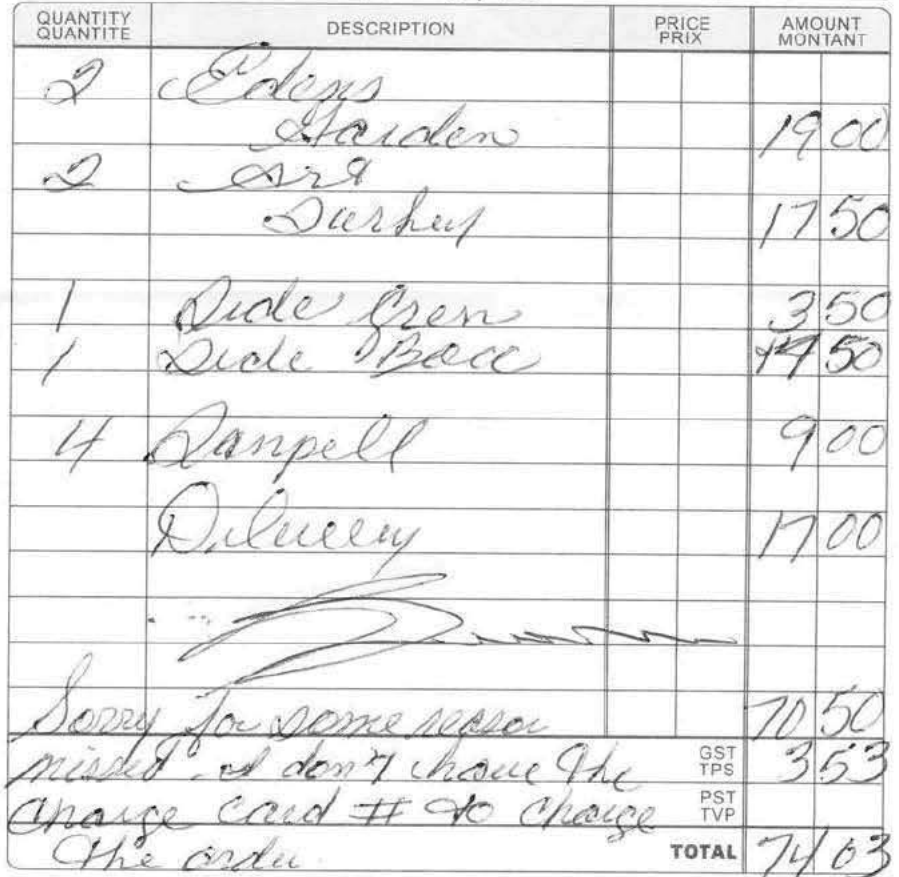 QUANTITY DESCRIPTION PRICE AMOUNT
QUANTITE PRIX MONTANT
2 Edens
Garden 19 00
2 Art
Turkey 17 50
1 Side 3 50
1 Side 4 50
4 Sanpell 9 00
Delivery 17 00
Sorry for some reason 70 50
missed. I don't have the GST TPS 3 53
charge card # to charge PST TVP
the order. TOTAL 74 03